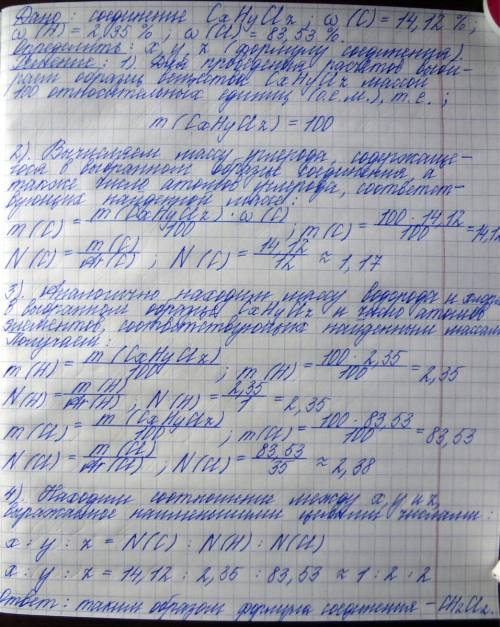 Дано: соединение CxHyClz; ω(C) = 14,12 %;
ω(H) = 2,35 %; ω(Cl) = 83,53 %.
Определить: x, y, z (формулу соединения).
Решение: 1). Для проведения расчётов
образец вещества CxHyClz массой
100 относительных единиц (а.е.м.), т.е.;
m(CxHyClz) = 100
2). Вычисляем массу углерода, содержаще-
гося в выбранном образце соединения, а
также число атомов углерода, соответст-
вующих найденной массе:
m(C) = m(CxHyClz) · ω(C) / 100 ; m(C) = 100 · 14,12 / 100 = 14,12
N(C) = m(C) / Ar(C) ; N(C) = 14,12 / 12 ≈ 1,17
3). Аналогично находим массу водорода и
в выбранном образце CxHyClz и число атомов
элементов, соответствующих найденным массам
Получаем:
m(H) = m(CxHyClz) / 100 ; m(H) = 100 · 2,35 / 100 = 2,35
N(H) = m(H) / Ar(H) ; N(H) = 2,35 / 1 = 2,35
m(Cl) = m(CxHyClz) / 100 ; m(Cl) = 100 · 83,53 / 100 = 83,53
N(Cl) = m(Cl) / Ar(Cl) ; N(Cl) = 83,53 / 35 ≈ 2,38
4). Находим соотношение между x, y и z,
выраженное наименьшими целыми числами:
x : y : z = N(C) : N(H) : N(Cl)
x : y : z = 14,12 : 2,35 : 83,53 ≈ 1 : 2 : 2
Ответ: таким образом формула соединения – CH₂Cl₂.